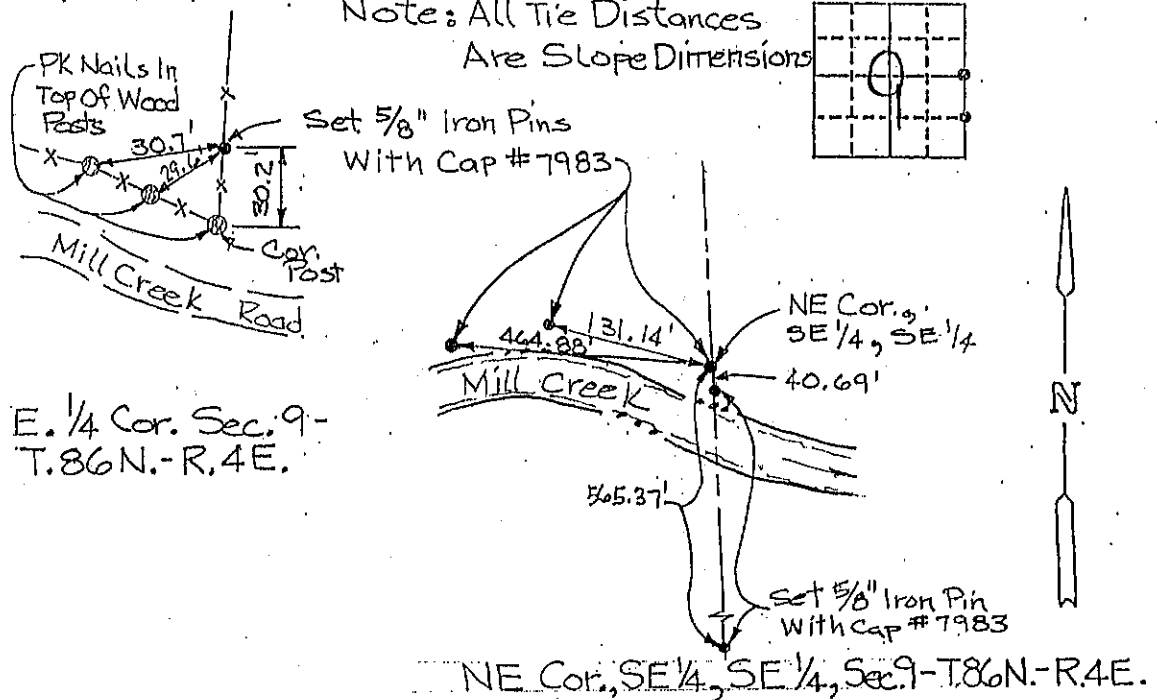 Note: All Tie Distances
Are Slope Dimensions
9
PK Nails In
Top Of Wood
Posts
30.7'
29.6'
30.2'
Set 5/8" Iron Pins
With Cap #7983
Cor.
Post
Mill Creek Road
E. 1/4 Cor. Sec. 9-
T.86N.-R.4E.
NE Cor.,
SE 1/4, SE 1/4
131.14'
464.88'
40.69'
Mill Creek
N
565.37'
Set 5/8" Iron Pin
With Cap #7983
NE Cor., SE 1/4, SE 1/4, Sec.9-T.86N.-R.4E.